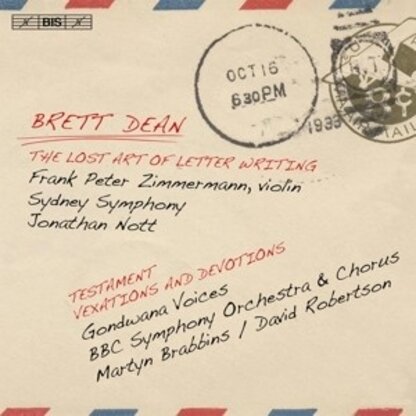 BIS
OCT 16
6 30 PM
1933
BRETT DEAN
THE LOST ART OF LETTER WRITING
Frank Peter Zimmermann, violin
Sydney Symphony
Jonathan Nott
TESTAMENT
VEXATIONS AND DEVOTIONS
Gondwana Voices
BBC Symphony Orchestra & Chorus
Martyn Brabbins / David Robertson